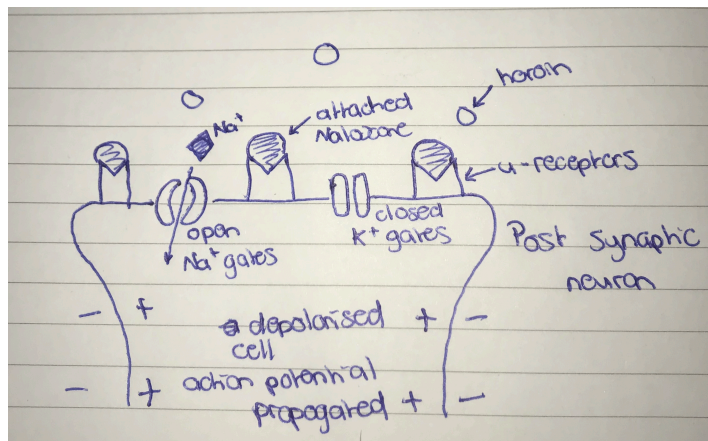 heroin
Na⁺
attached
Naloxone
u-receptors
open
Na⁺ gates
closed
K⁺ gates
Post synaptic
neuron
- + depolarised + -
cell
- + action potential
propogated + -